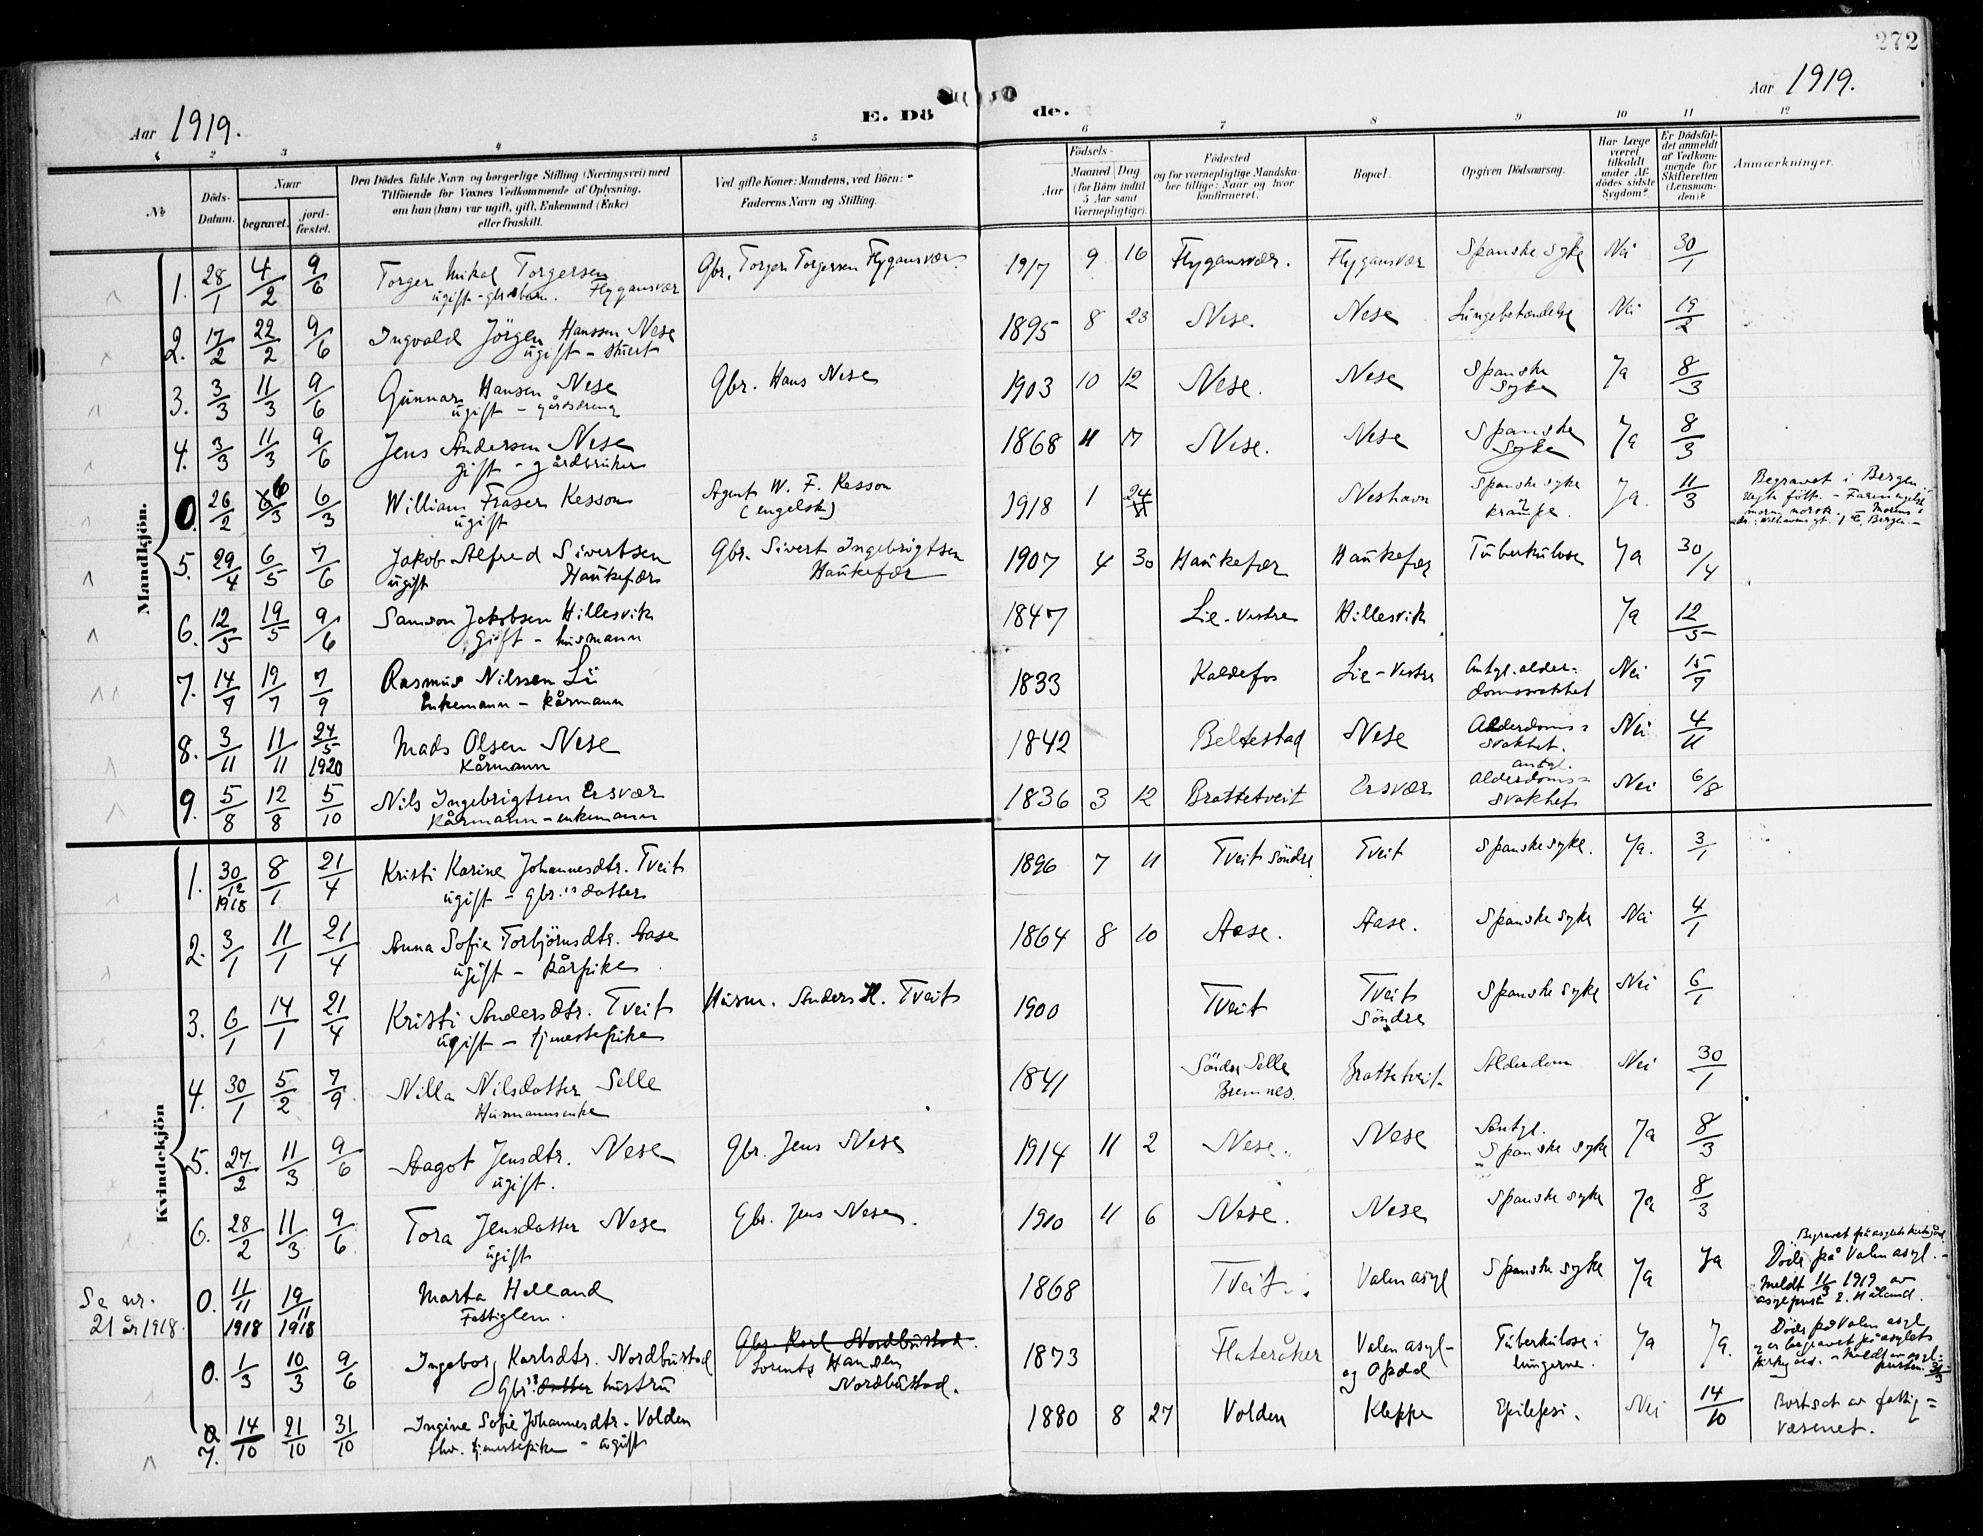 272
Aar 1919.
E. Dö de.
Aar 1919.
1 2 3 4 5 6 7 8 9 10 11 12
No
Döds-Datum.
Naar
begravet.
jord-fæstet.
Den Dödes fulde Navn og borgerlige Stilling (Næringsvei) med
Tilföiende for Voxnes Vedkommende af Oplysning,
om han (hun) var ugift, gift, Enkemand (Enke)
eller fraskilt.
Ved gifte Koner: Mandens, ved Börn:
Faderens Navn og Stilling.
Födsels-
Aar
Maaned Dag
(for Börn indtil
5 Aar samt
Værnepligtige).
Födested
og for værnepligtige Mandska-
ber tillige: Naar og hvor
konfirmeret.
Bopæl.
Opgiven Dödsaarsag.
Har Læge
været
tilkaldt
under Af-
dödes sidste
Sygdom?
Er Dödsfal-
det anmeldt
af Vedkom-
mende for
Skifteretten
(Lensman-
den)?
Anmærkninger.
Mandkjön.
1. 28/1 4/2 9/6 Torger Mikal Torgersen Gbr. Torger Torgersen Flygansvær. 1917 9 16 Flygansvær. Flygansvær Spanske syke Nei 30/1
ugift - gbr. barn. Flygansvær
2. 17/2 22/2 9/6 Ingvald Jörgen Hanssen Nese 1895 8 23 Nese. Nese Lungebetændelse Nei 19/2
ugift - stuert
3. 3/3 11/3 9/6 Gunnar Hansen Nese Gbr. Hans Nese 1903 10 12 Nese. Nese Spanske syke Ja 8/3
ugift - gårdsdreng
4. 3/3 11/3 9/6 Jens Andersen Nese 1868 11 17 Nese. Nese Spanske syke Ja 8/3
gift - gårdbruker
0. 26/2 6/3 6/3 William Fraser Kesson Agent W. F. Kesson 1918 1 24 Neshavn Spanske syke Ja. 11/3 Begravet i Bergen.
ugift (engelsk) krampe.
morm norsk.
Bergen.
5. 29/4 6/5 7/6 Jakob Alfred Sivertsen Gbr. Sivert Ingebrigtsen 1907 4 30 Haukefær Haukefær Tuberkulose Ja 30/4
ugift Haukefær Haukefær
6. 12/5 19/5 9/6 Samson Jakobsen Hillesvik 1847 Lie-Vestre Hillesvik Ja 12/5
Gift - husmann
7. 14/7 19/7 7/9 Rasmus Nilssen Li 1833 Kaldefos Lie-Vestre Antgl. alder-domssvakhet Nei 15/7
Enkemann - kårmann
8. 3/11 11/11 24/5 1920 Mads Olsen Nese 1842 Beltestad Nese Alderdoms-svakhet. Nei 4/11
Kårmann
9. 5/8 12/8 5/10 Nils Ingebrigtsen Ersvær 1836 3 12 Brattetveit Ersvær antgl. Alderdoms-svakhet Nei 6/8
Kårmann - enkemann
Kvindekjön
1. 30/12 1918 8/1 21/4 Kristi Karine Johannesdtr. Tveit 1896 7 11 Tveit söndre Tveit Spanske syke. Ja. 3/1
ugift - gbr.'s datter
2. 3/1 11/1 21/4 Anna Sofie Torbjörnsdtr. Aase 1864 8 10 Aase. Aase. Spanske syke Nei 4/1
ugift - kårpike
3. 6/1 14/1 21/4 Kristi Andersdtr. Tveit Husm. Anders H. Tveit 1900 Tveit Tveit Söndre Spanske syke Nei 6/1
ugift - tjenestepike
4. 30/1 5/2 7/9 Nilla Nilsdatter Selle 1841 Söndre Selle Bremnes. Brattetveit. Alderdom Nei 30/1
Husmannsenke
5. 27/2 11/3 9/6 Aagot Jensdtr. Nese Gbr. Jens Nese 1914 11 2 Nese. Nese Antgl. Spanske syke Ja 8/3
ugift.
6. 28/2 11/3 9/6 Tora Jensdatter Nese Gbr. Jens Nese. 1910 11 6 Nese. Nese Spanske syke Ja 8/3
ugift
Se nr. 21 år 1918.
0. 11/11 1918 19/11 1918 Marta Helland 1868 Tveit. Valen asyl Spanske syke Ja Ja Begravet på asylets kirkegård
Fattiglem.
Döde på Valen asyl. -
Meldt 11/3 1919 av
asylprest E. Håland.
0. 1/3 10/3 9/6 Ingeborg Karlsdtr. Nordbustad Gbr. Karl Nordbustad. 1873 Flateråker Valen asyl - og Opdal Tuberkulose i lungerne. Ja Ja. Döde på Valen asyl
Gbr's datter hustru Lorents Hansen
Nordbustad.
og er begravet på asylets
0 7. 14/10 21/10 31/10 Ingine Sofie Johannesdtr. Volden 1880 8 27 Volden Kleppe Epilepsi. Nei 14/10 Bortsat av fattig=
fhv. tjenestepike - ugift væsenet.